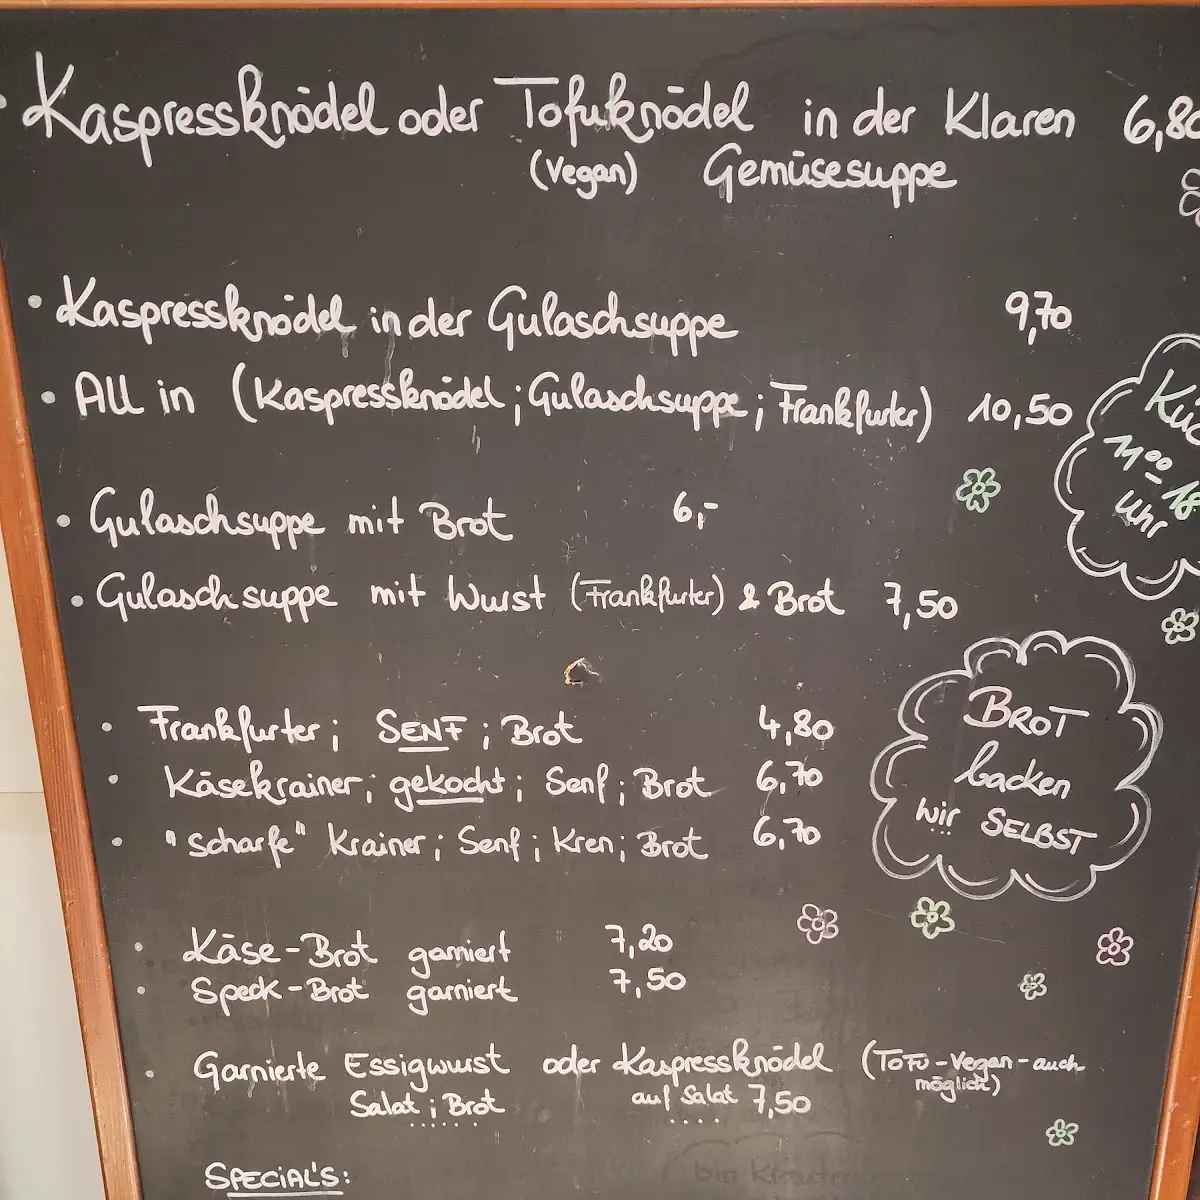 • Kaspressknödel oder Tofuknödel in der Klaren 6,80
(Vegan) Gemüsesuppe
• Kaspressknödel in der Gulaschsuppe 9,70
• All in (Kaspressknödel ; Gulaschsuppe ; Frankfurter) 10,50
11⁰⁰ - 18
Uhr
• Gulaschsuppe mit Brot 6,-
• Gulaschsuppe mit Wurst (Frankfurter) & Brot 7,50
• Frankfurter ; SENF ; Brot 4,80
• Käsekrainer ; gekocht ; Senf ; Brot 6,70
• "scharfe" Krainer ; Senf ; Kren ; Brot 6,70
BROT
backen
wir SELBST
• Käse-Brot garniert 7,20
• Speck-Brot garniert 7,50
• Garnierte Essigwurst oder Kaspressknödel (TOFU-Vegan-auch
Salat ; Brot auf Salat 7,50 möglich)
SPECiAL'S: